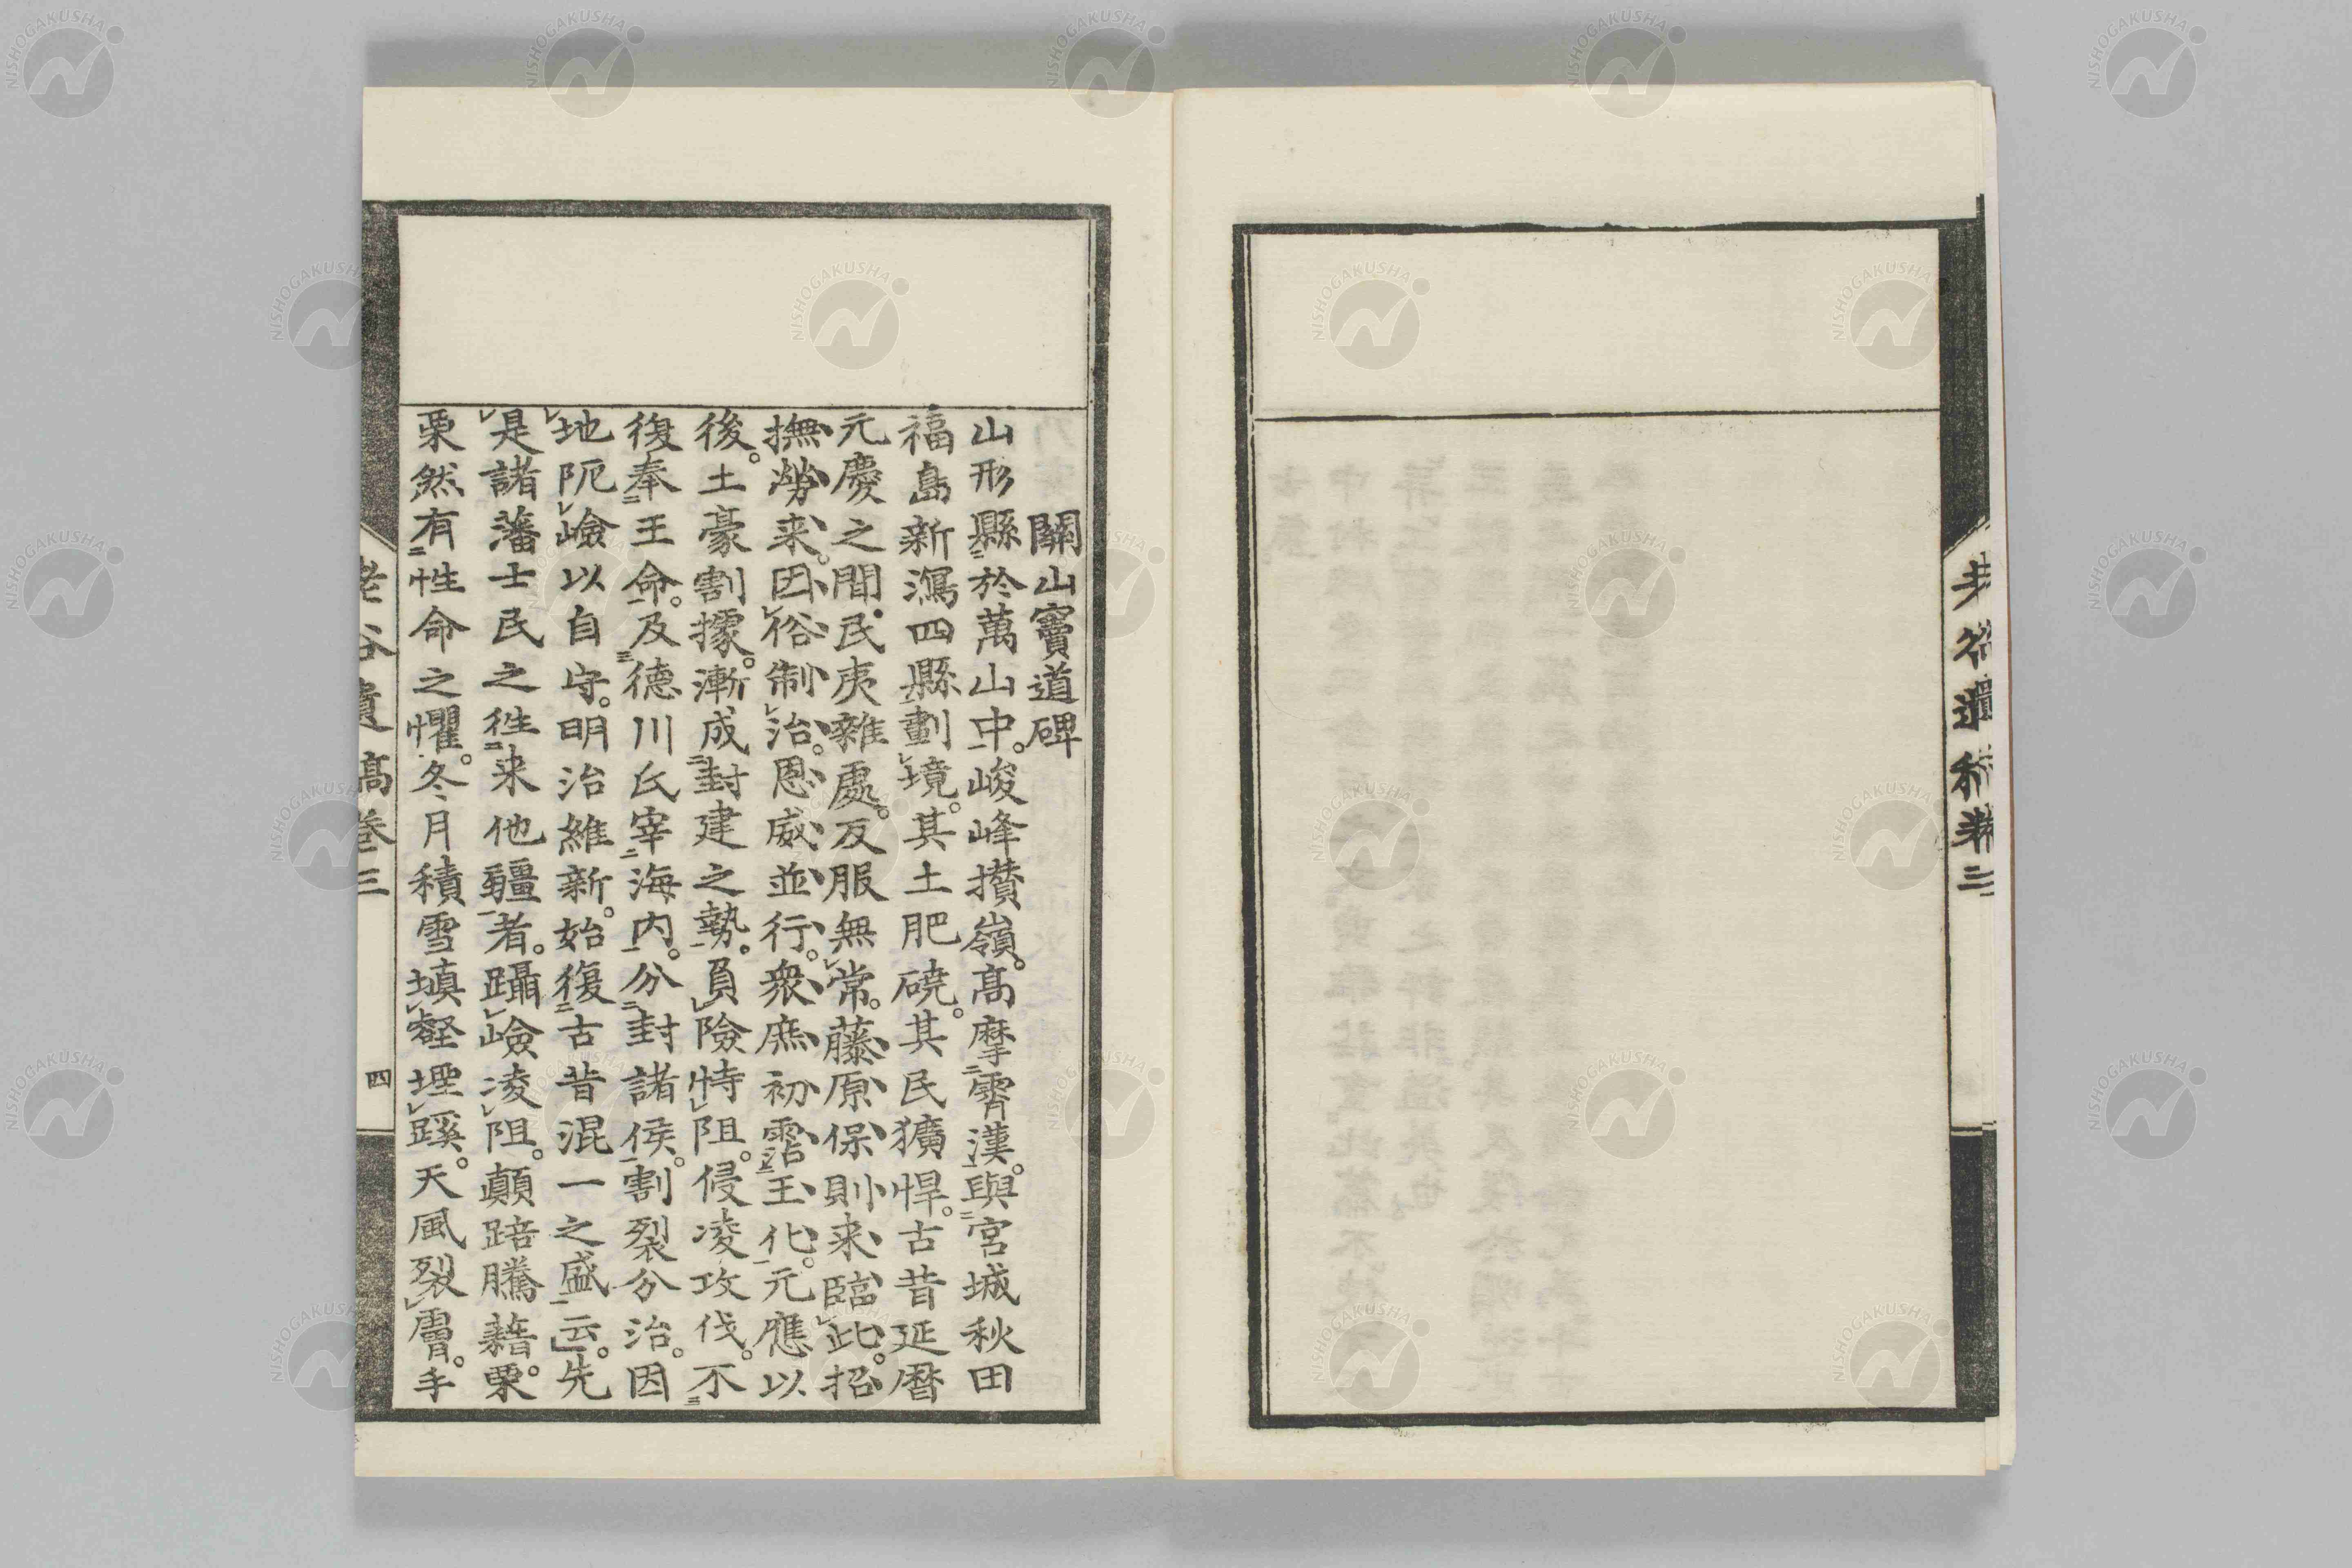 關山寶道碑
山形縣於萬山中。峻峰攢嶺。高摩霄漢。與宮城秋田
福島新潟四縣劃境。其土肥磽。其民獷悍。古昔延曆
元慶之間。民夷雜處。反服無常。藤原保則来臨此。招
撫勞来。因俗制治。恩威並行。衆庶初霑王化。元應以
後。土豪割據。漸成封建之勢。負險恃阻。侵凌攻伐。不
復奉王命。及德川氏宰海内。分封諸侯。割裂分治。因
地阨嶮以自守。明治維新。始復古昔混一之盛云。先
是諸藩士民之徃来他疆者。躡嶮凌阻。顛踣騰藉。栗
栗然有性命之懼。冬月積雪塡壑埋蹊。天風裂膚。手
老谷遺稿卷三
四